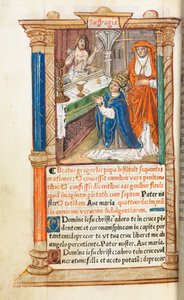 Suffragia
Beatus gregorius papa instituit sequentes
orationes: & concessit omnibus vere peniten
tibus & confessis dicentibus eas genibus flexis
imaginem pietatis cum septem Pater nr
ster & totidem Aue maria quattuordecim mi
lia annorum verarum indulgentiarum
O Domine iesu christe adoro te in cruce pendē
tem et coronam spineam in capite por
tantem deprecor te vt tua crux liberet me ab
angelo percutiente. Pater noster. Aue maria.
O Domine iesu christe adoro te in cruce vul
neratum felle et aceto potatum: deprecor